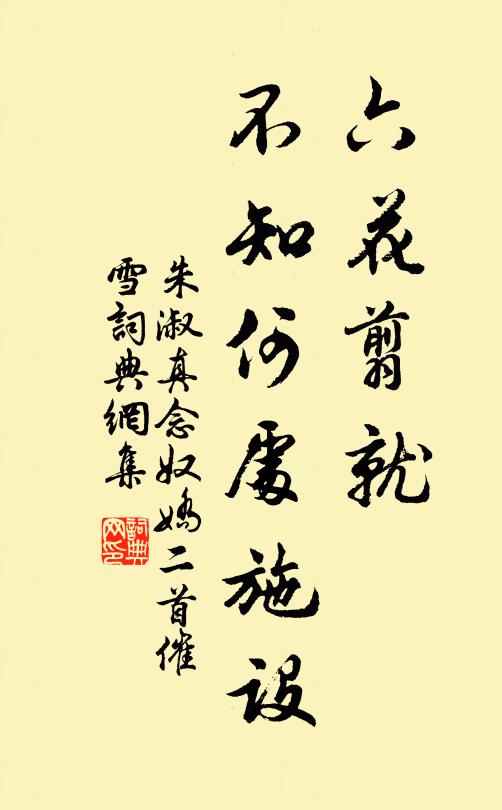 六花翦就
不知何處施設
朱淑真念奴嬌二首催
雪詞典網集
詞典网印